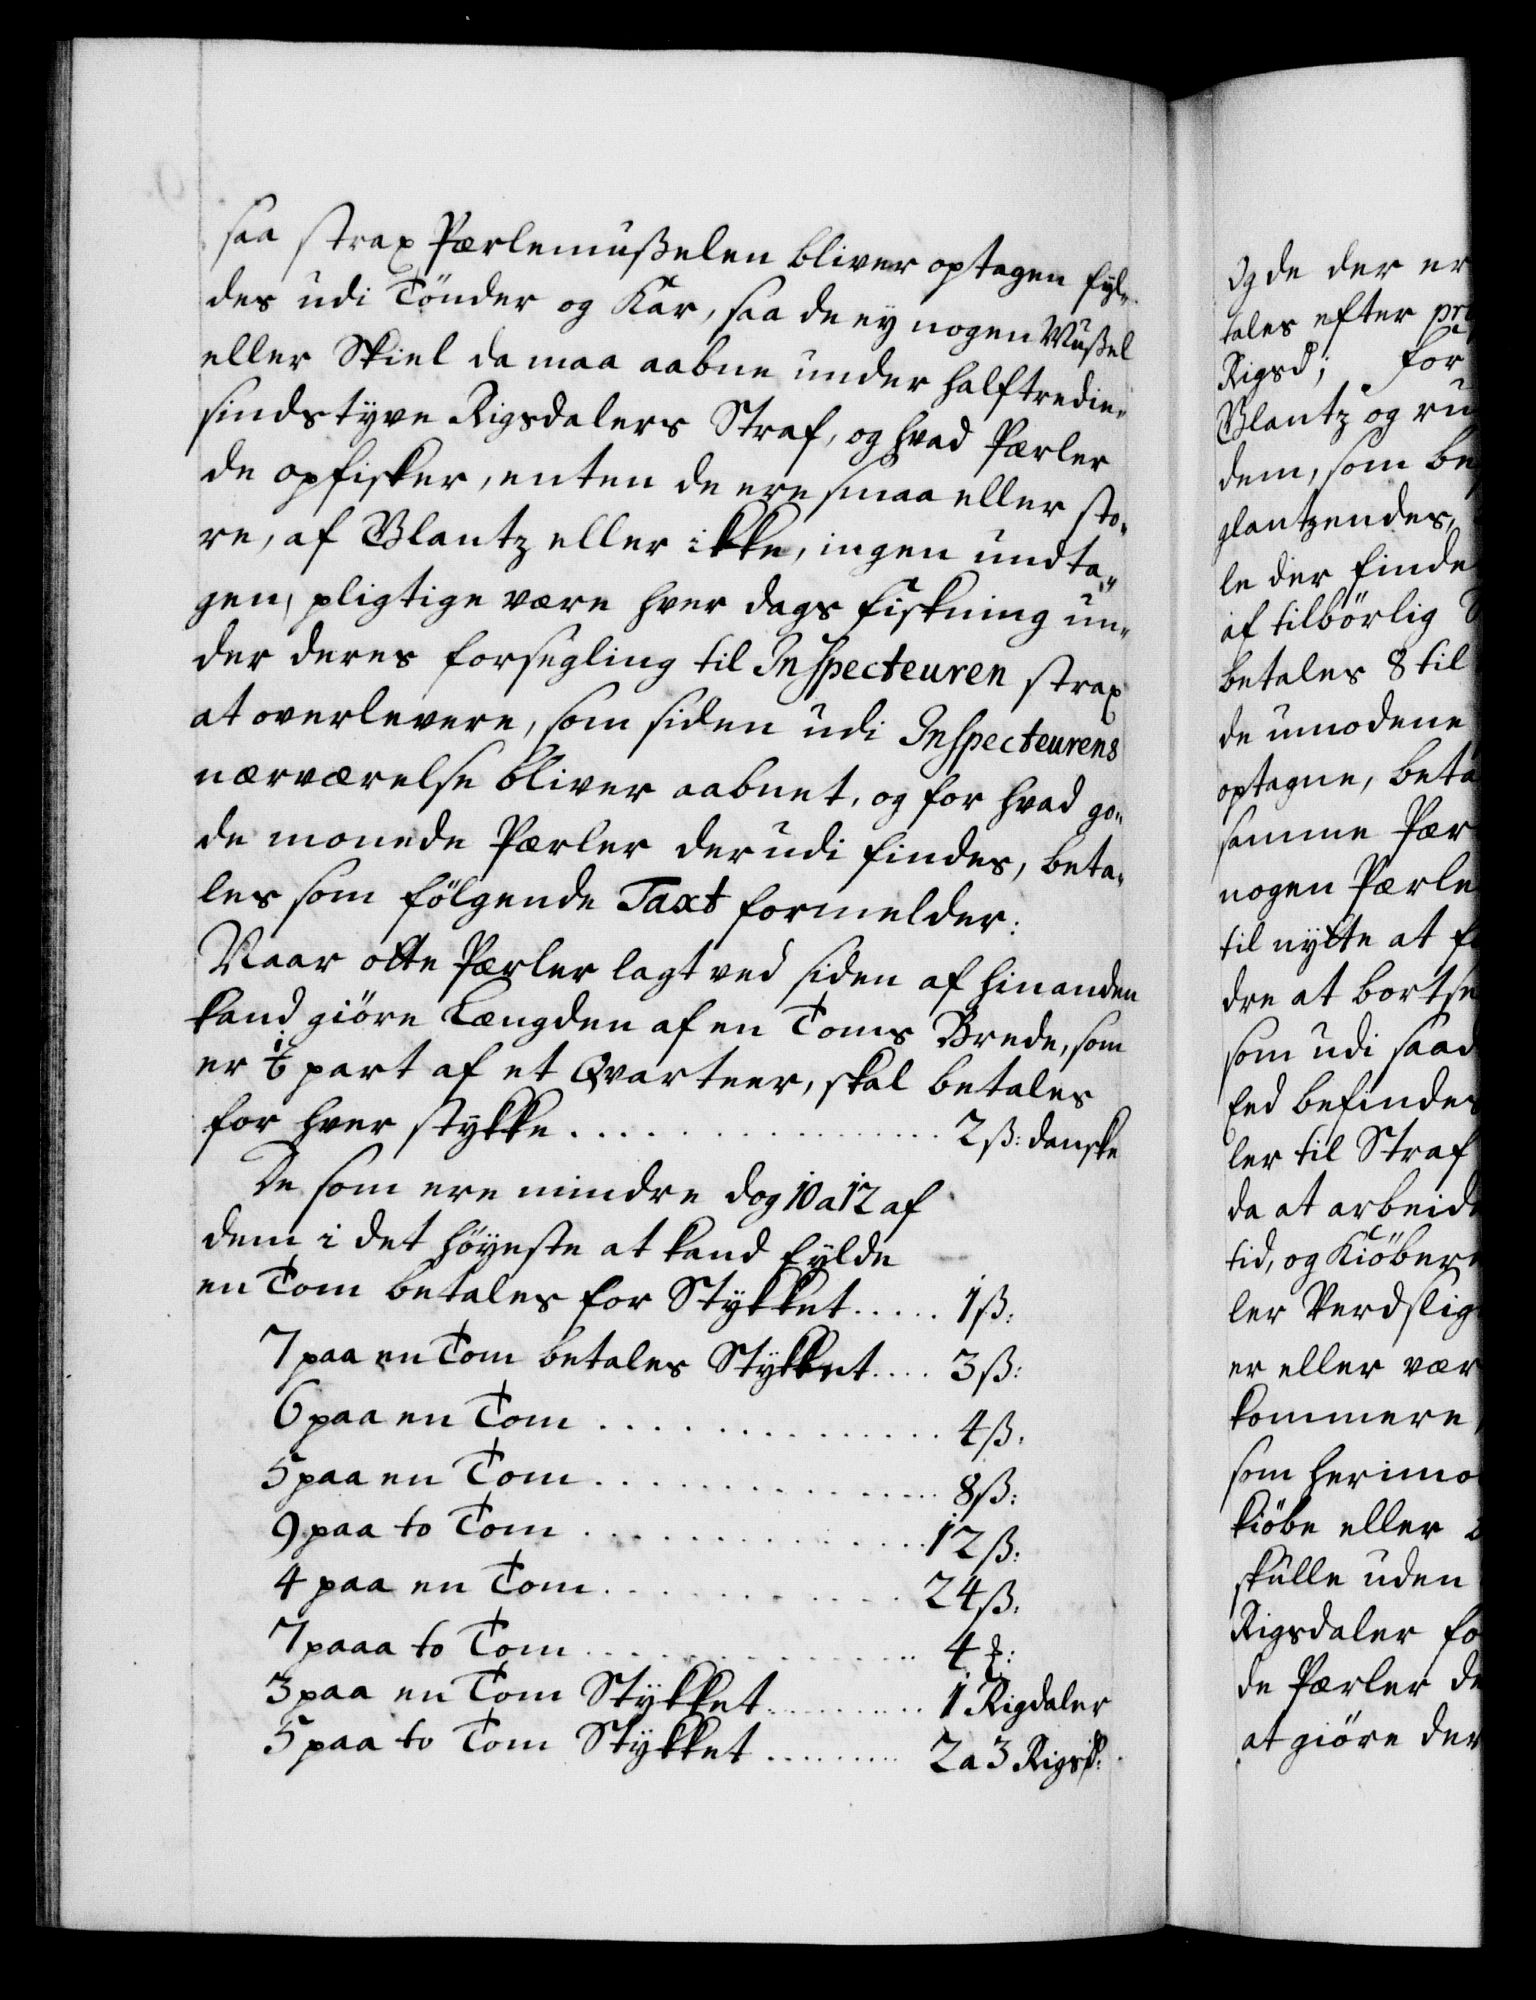 saa strax Pærlemußelen bliver optagen fyl-
des udi Tönder og Kar, saa de ey nogen Mußel
eller Skiel da maa aabne under halftredie-
sindstyve Rigsdalers Straf, og hvad Pærler
de opfisker, enten de ere smaa eller sto-
re, af Glantz eller ikke, ingen undta-
gen, pligtige være hver dags fiskning un-
der deres forsegling til Inspecteuren strax
at overlevere, som siden udi Inspecteurens
nærværelse bliver aabnet, og for hvad go-
de monede Pærler derudi findes, beta-
les som fölgende Taxt formelder:
Naar otte Pærler lagt ved siden af hinanden
kand giöre Længden af en Toms Brede, som
er 1/6 part af et Qvarteer, skal betales
for hver stykke . . . . . . . . . . . . . . 2ß: danske
De som ere mindre dog 10 a 12 af
dem i det höyeste at kand fylde
en Tom betales for Stykket . . . . . 1ß:
7 paa en Tom betales Stykket . . . . 3ß:
6 paa en Tom . . . . . . . . . . . . 4ß:
5 paa en Tom . . . . . . . . . . . . 8ß:
9 paa to Tom . . . . . . . . . . . . 12ß:
4 paa en Tom . . . . . . . . . . . . 24ß:
7 paaa to Tom . . . . . . . . . . . . 4 ꝑ:
3 paa en Tom Stykket . . . . . . . . 1 Rigdaler
5 paa to Tom Stykket . . . . . . . . 2 a 3 Rigsd:
Og de der er
tales efter pr
Rigsd; for
Glantz og ru
dem, som be
glantzendes,
le der finde
af tilbörlig
betales 8 til
de umodene
optagne, beta
samme Pær
nogen Pærle
til nytte at f
dre at bortse
som udi saad
Eed befindes
ler til Straf
da at arbeid
tid, og Kiöber
ler Verdslig
er eller vær
kommere,
som herimo
kiöbe eller
skulle uden
Rigsdaler fo
de Pærler de
at giöre der